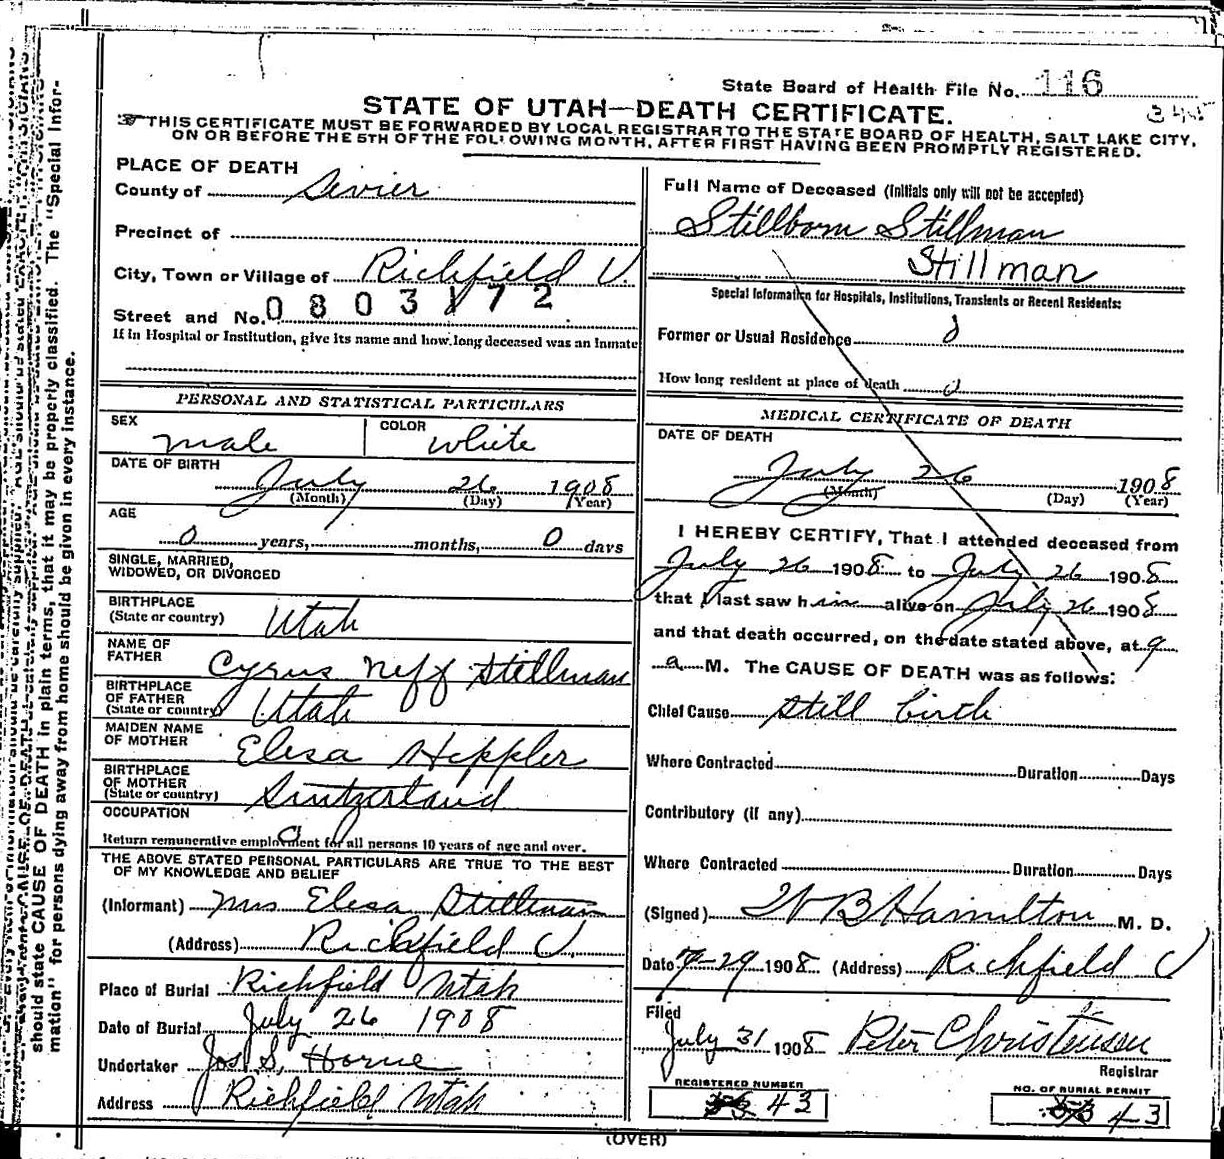 State Board of Health File No. 116
345
STATE OF UTAH—DEATH CERTIFICATE.
THIS CERTIFICATE MUST BE FORWARDED BY LOCAL REGISTRAR TO THE STATE BOARD OF HEALTH, SALT LAKE CITY,
ON OR BEFORE THE 5TH OF THE FOLLOWING MONTH, AFTER FIRST HAVING BEEN PROMPTLY REGISTERED.
PLACE OF DEATH
County of Sevier
Precinct of
City, Town or Village of Richfield U.
0803172
Street and No.
If in Hospital or Institution, give its name and how long deceased was an Inmate
PERSONAL AND STATISTICAL PARTICULARS
SEX male COLOR white
DATE OF BIRTH July 26 1908
(Month) (Day) (Year)
AGE
0 years, months, 0 days
SINGLE, MARRIED,
WIDOWED, OR DIVORCED
BIRTHPLACE
(State or country) Utah
NAME OF
FATHER Cyrus Neff Stillman
BIRTHPLACE
OF FATHER
(State or country) Utah
MAIDEN NAME
OF MOTHER Elesa Heppler
BIRTHPLACE
OF MOTHER
(State or country) Switzerland
OCCUPATION
Return remunerative employment for all persons 10 years of age and over.
THE ABOVE STATED PERSONAL PARTICULARS ARE TRUE TO THE BEST
OF MY KNOWLEDGE AND BELIEF
(Informant) Mrs Elesa Stillman
(Address) Richfield U.
Place of Burial Richfield Utah
Date of Burial July 26 1908
Undertaker Jos S. Horne
Address Richfield Utah
Full Name of Deceased (Initials only will not be accepted)
Stillborn Stillman
Stillman
Special Information for Hospitals, Institutions, Transients or Recent Residents:
Former or Usual Residence 0
How long resident at place of death 0
MEDICAL CERTIFICATE OF DEATH
DATE OF DEATH
July 26 1908
(Month) (Day) (Year)
I HEREBY CERTIFY, That I attended deceased from
July 26 1908 to July 26 1908
that I last saw him alive on July 26 1908
and that death occurred, on the date stated above, at 9
a M. The CAUSE OF DEATH was as follows:
Chief Cause still birth
Where Contracted Duration Days
Contributory (if any)
Where Contracted Duration Days
(Signed) W B Hamilton M. D.
Date 7-29 1908 (Address) Richfield U
Filed
July 31 1908 Peter Christensen
Registrar
REGISTERED NUMBER
43
NO. OF BURIAL PERMIT
43
(OVER)
should state CAUSE OF DEATH in plain terms, that it may be properly classified. The "Special Infor-
mation" for persons dying away from home should be given in every instance.